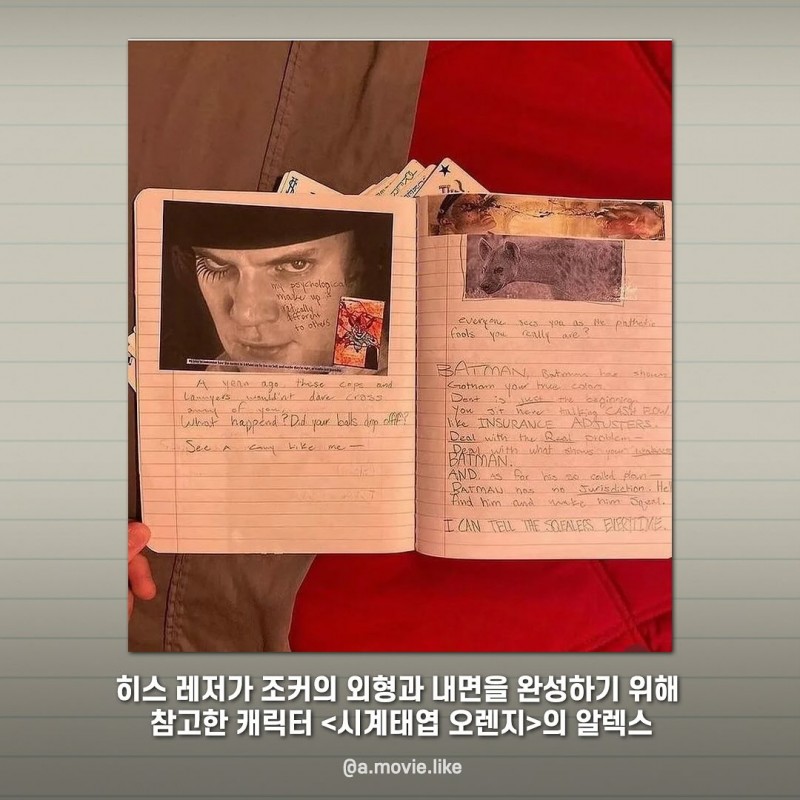 my psychological
make up is
radically
different
to others
A year ago, these cops and
lawyers wouldn't dare cross
any of you,
What happend? Did your balls drop offff?
See a Guy Like me —
everyone sees you as the pathetic
fools you really are?
BATMAN, Batman has shown
Gotham your true colors.
Dent is just the beginning.
You sit here talking CASH FLOW
like INSURANCE ADJUSTERS.
Deal with the Real problem—
Deal with what shows your
BATMAN.
AND. as for his so called plan—
BATMAN has no Jurisdiction. He'll
find him and make him Squeal.
I CAN TELL THE SQUEALERS EVERYTIME.
히스 레저가 조커의 외형과 내면을 완성하기 위해
참고한 캐릭터 <시계태엽 오렌지>의 알렉스
@a.movie.like